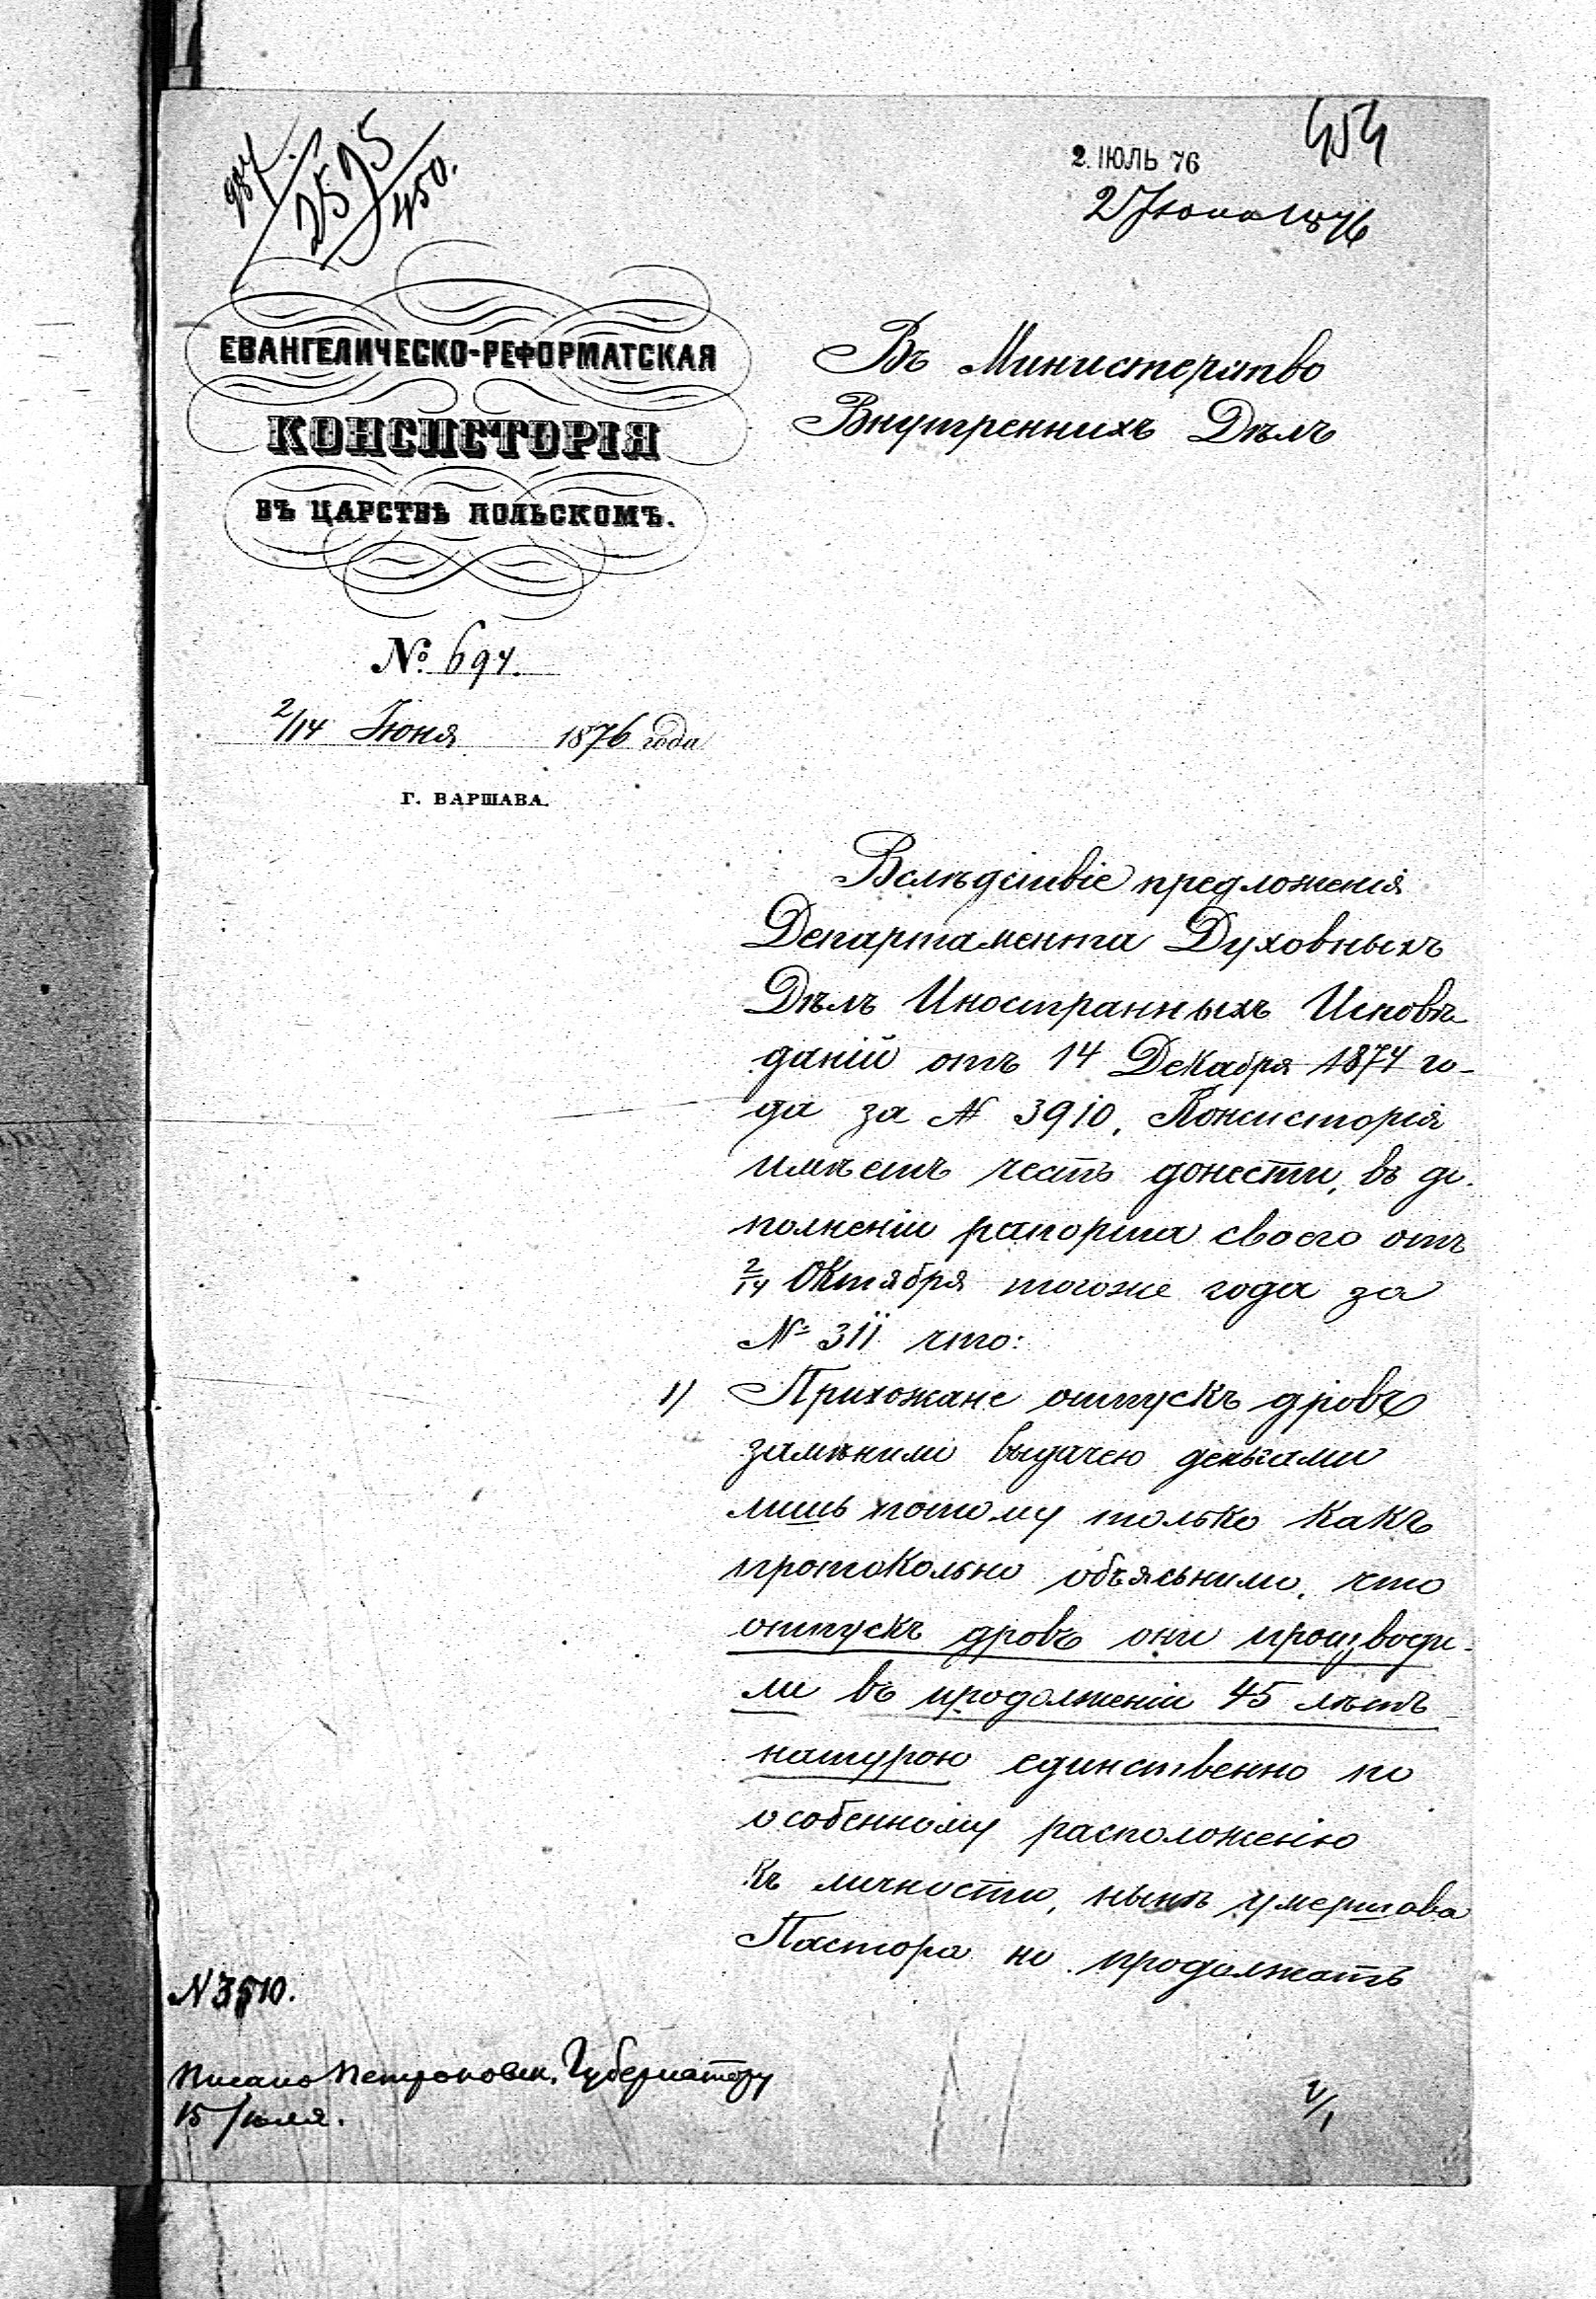 2575
450.
454
2. ІЮЛЬ 76
2 Іюля 1876
ЕВАНГЕЛИЧЕСКО-РЕФОРМАТСКАЯ
КОНСИСТОРІЯ
ВЪ ЦАРСТВѢ ПОЛЬСКОМЪ.
№ 694.
2/14 Іюня 1876 года
Г. ВАРШАВА.
Въ Министерство
Внутреннихъ Дѣлъ
Вслѣдствіе предложенія
Департамента Духовныхъ
Дѣлъ Иностранныхъ Исповѣ-
даній отъ 14 Декабря 1874 го-
да за № 3910, Консисторія
имѣетъ честь донести, въ до-
полненіи рапорта своего отъ
2/14 Октября тогоже года за
№ 311 что:
1) Прихожане отпускъ дровъ
замѣнили выдачею деньгами
лишь потому только какъ
протокольно объяснили, что
отпускъ дровъ они производи-
ли въ продолженіи 45 лѣтъ
натурою единственно по
особенному расположенію
къ личности, нынѣ умершова
Пастора но продолжать
N 3510.
Писано Петроковск. Губернатору
15 Іюля.